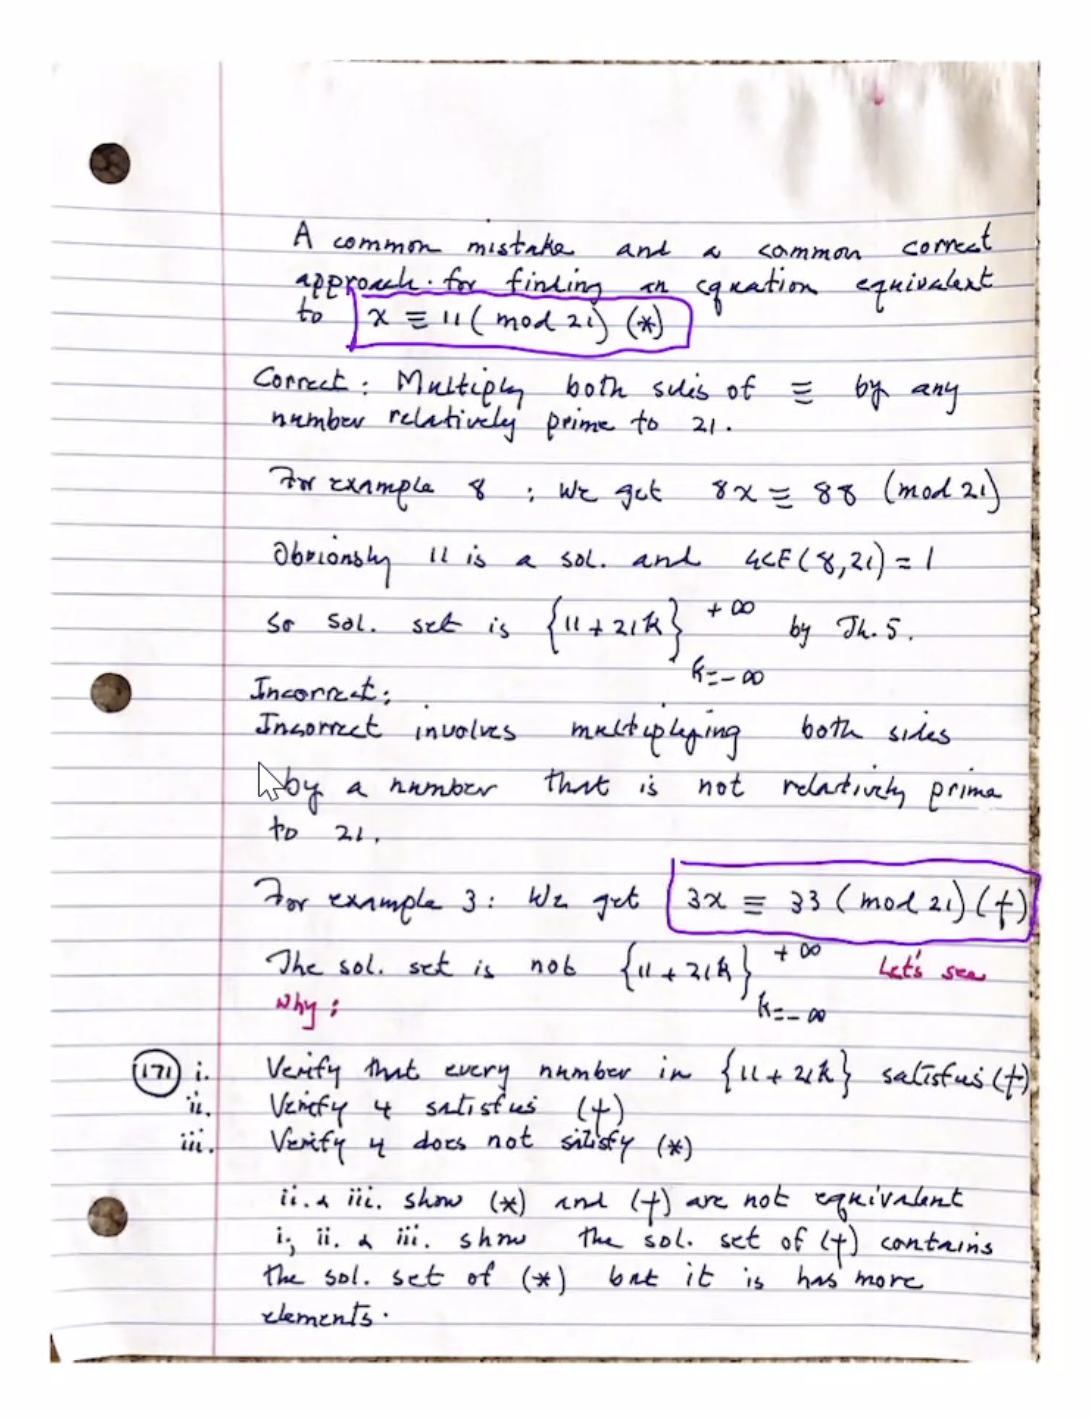 A common mistake and a common correct
approach for finding an equation equivalent
to x ≡ 11 (mod 21) (*)
Correct: Multiply both sides of ≡ by any
number relatively prime to 21.
For example 8 : We get 8x ≡ 88 (mod 21)
Obviously 11 is a sol. and GCF(8,21) = 1
So sol. set is {11 + 21k} +∞ by Th. 5.
k=-∞
Incorrect:
Incorrect involves multiplying both sides
by a number that is not relatively prime
to 21.
For example 3: We get 3x ≡ 33 (mod 21) (†)
The sol. set is not {11 + 21k} +∞ Let's see
why: k=-∞
(171) i. Verify that every number in {11 + 21k} satisfies (†)
ii. Verify 4 satisfies (†)
iii. Verify 4 does not satisfy (*)
ii. & iii. show (*) and (†) are not equivalent
i, ii. & iii. show the sol. set of (†) contains
the sol. set of (*) but it is has more
elements.